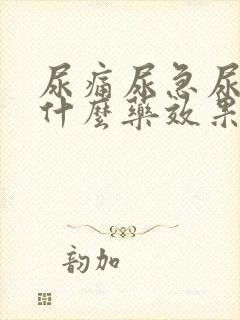 尿痛尿急尿
什麼藥效果
韵加